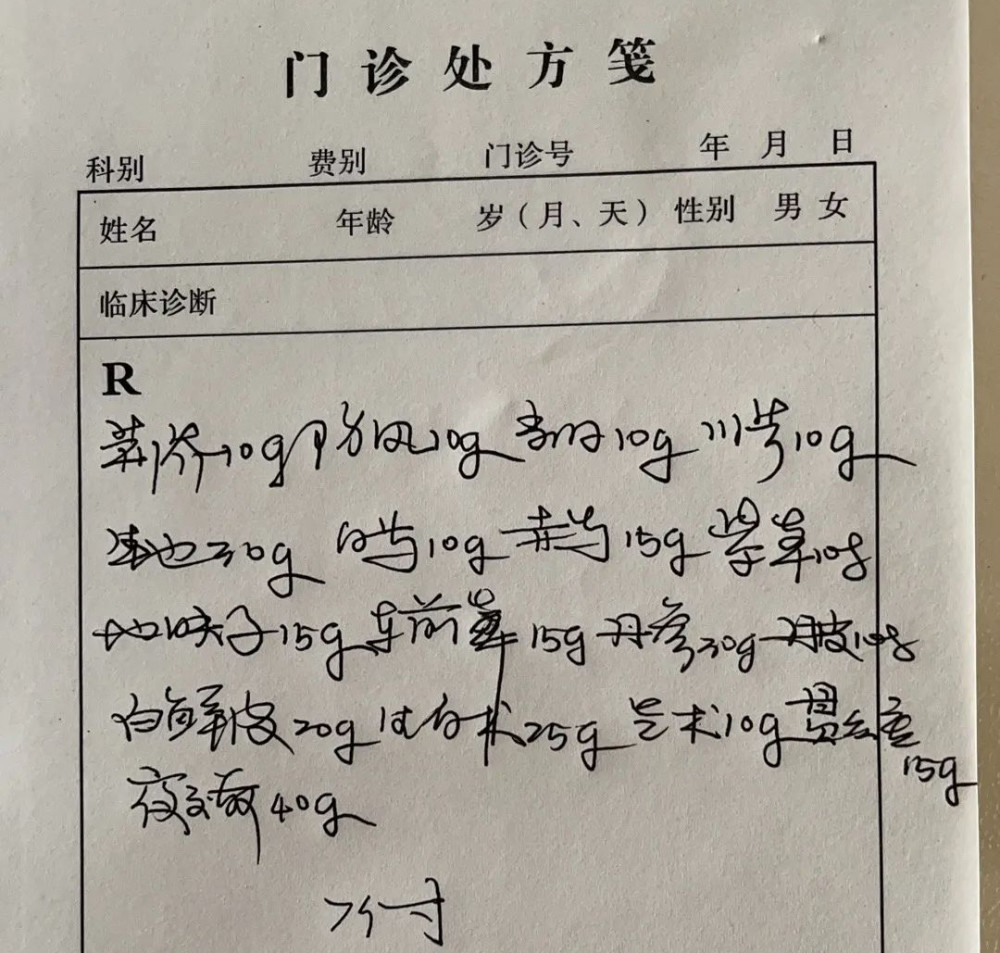 门诊处方笺
科别 费别 门诊号 年 月 日
姓名 年龄 岁（月、天） 性别 男 女
临床诊断
R
荆芥10g 防风10g 当归10g 川芎10g
生地30g 白芍10g 赤芍15g 紫草10g
地肤子15g 车前草15g 丹参30g 丹皮10g
白鲜皮20g 过白术25g 苍术10g 15g
夜交藤40g
7付